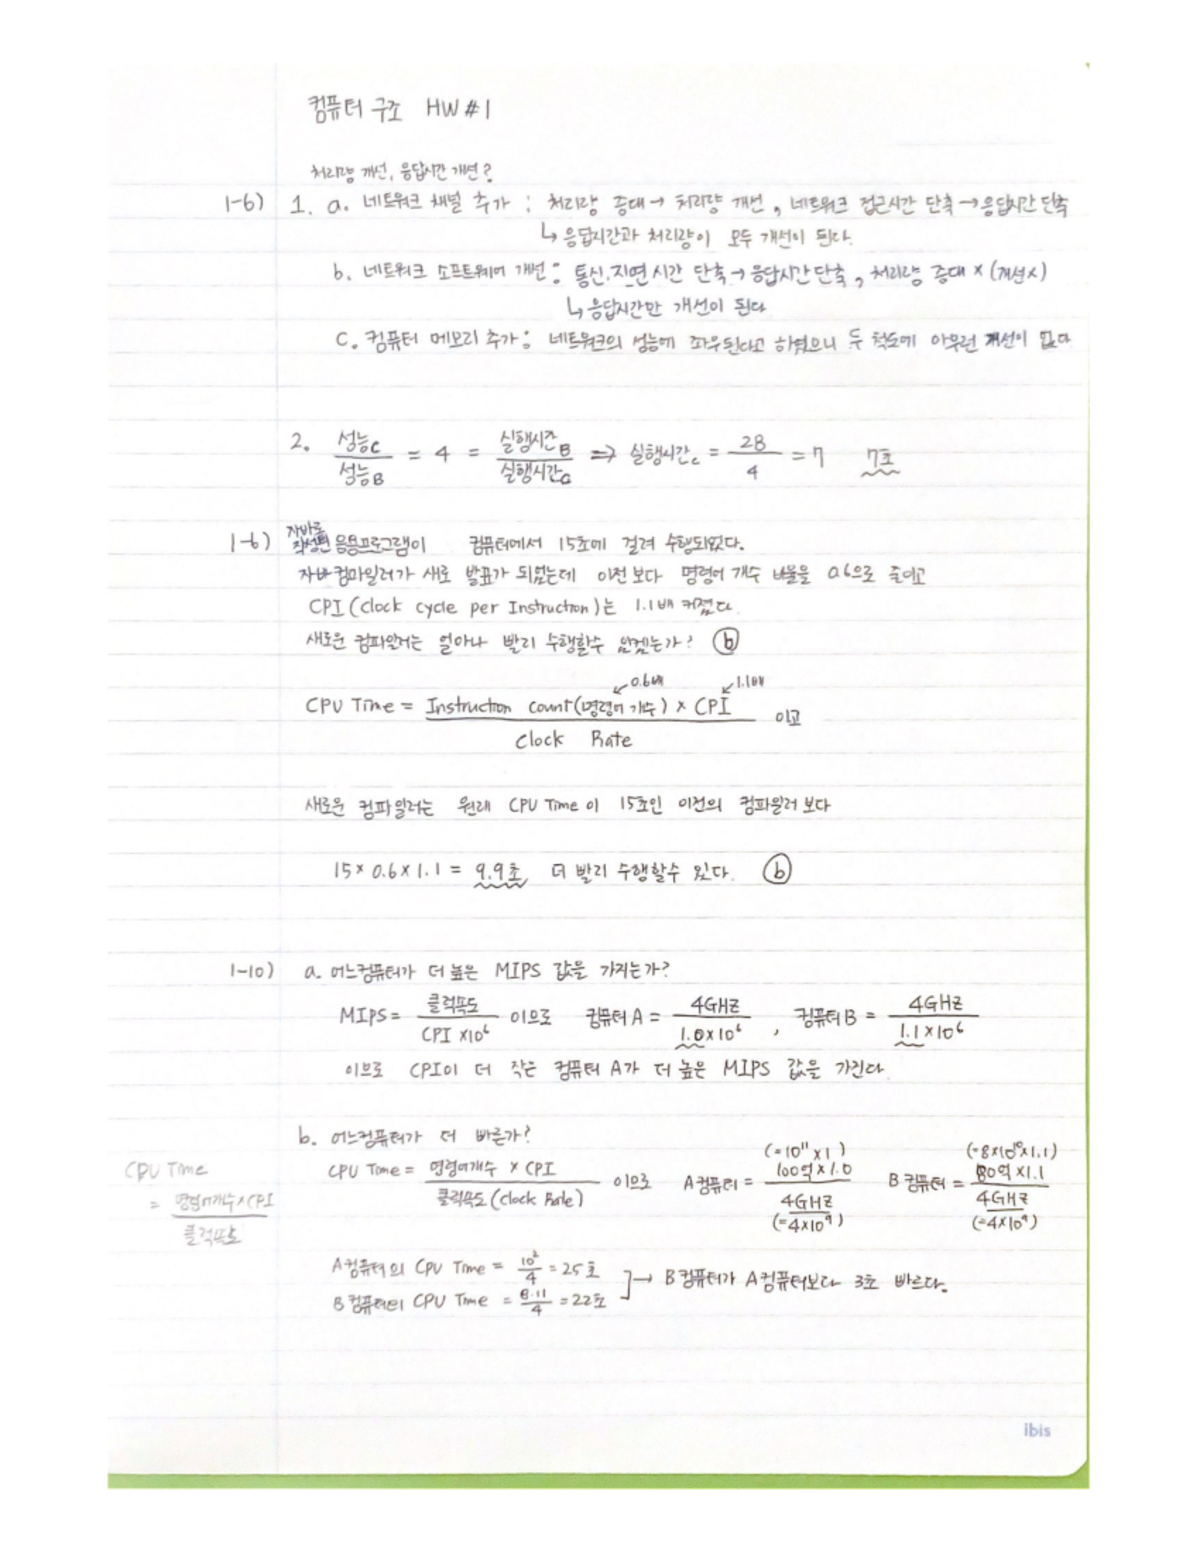 컴퓨터 구조 HW#1
처리량 개선, 응답시간 개선?
1-6) 1. a. 네트워크 채널 추가 : 처리량 증대 → 처리량 개선, 네트워크 접근시간 단축 → 응답시간 단축
↳ 응답시간과 처리량이 모두 개선이 된다.
b. 네트워크 소프트웨어 개선: 통신.지연 시간 단축 → 응답시간 단축, 처리량 증대 × (개선×)
↳ 응답시간만 개선이 된다
C. 컴퓨터 메모리 추가: 네트워크의 성능에 좌우된다고 하였으니 두 척도에 아무런 개선이 없다
2. 성능C / 성능B = 4 = 실행시간B / 실행시간C ⇒ 실행시간c = 28 / 4 = 7 7초
1-6) 자바로 작성된 응용프로그램이 컴퓨터에서 15초에 걸려 수행되었다.
자바 컴파일러가 새로 발표가 되었는데 이전 보다 명령어 개수 비율을 0.6으로 줄이고
CPI (clock cycle per Instruction)는 1.1배 커졌다.
새로운 컴파일러는 얼마나 빨리 수행할수 있겠는가? ⓑ
↙0.6배 ↙1.1배
CPU Time = Instruction count(명령어 개수) × CPI / Clock Rate 이고
새로운 컴파일러는 원래 CPU Time이 15초인 이전의 컴파일러 보다
15 × 0.6 × 1.1 = 9.9초 더 빨리 수행할수 있다. ⓑ
1-10) a. 어느컴퓨터가 더 높은 MIPS 값을 가지는가?
MIPS = 클럭속도 / CPI ×10⁶ 이므로 컴퓨터 A = 4GHZ / 1.0×10⁶ , 컴퓨터 B = 4GHZ / 1.1×10⁶
이므로 CPI이 더 작은 컴퓨터 A가 더 높은 MIPS 값을 가진다.
b. 어느컴퓨터가 더 빠른가?
CPU Time = 명령어개수 × CPI / 클럭속도 (Clock Rate) 이므로 A컴퓨터 = (=10¹¹×1) 100억×1.0 / 4GHZ (=4×10⁹) B컴퓨터 = (=8×10¹⁰×1.1) 80억×1.1 / 4GHZ (=4×10⁹)
CPU Time
= 명령어개수×CPI / 클럭속도
A컴퓨터의 CPU Time = 10² / 4 = 25초
B컴퓨터의 CPU Time = 8·11 / 4 = 22초 ]→ B컴퓨터가 A컴퓨터보다 3초 빠르다.
ibis